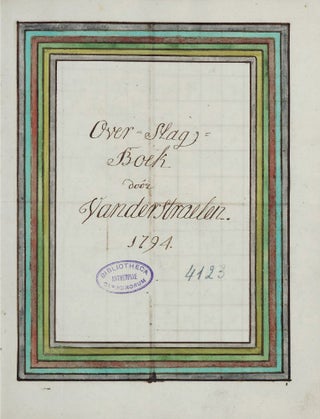 Over-Slag-
Boek
door
Vanderstraelen.
1794.
BIBLIOTHECA
ANTVERPIAE
4123